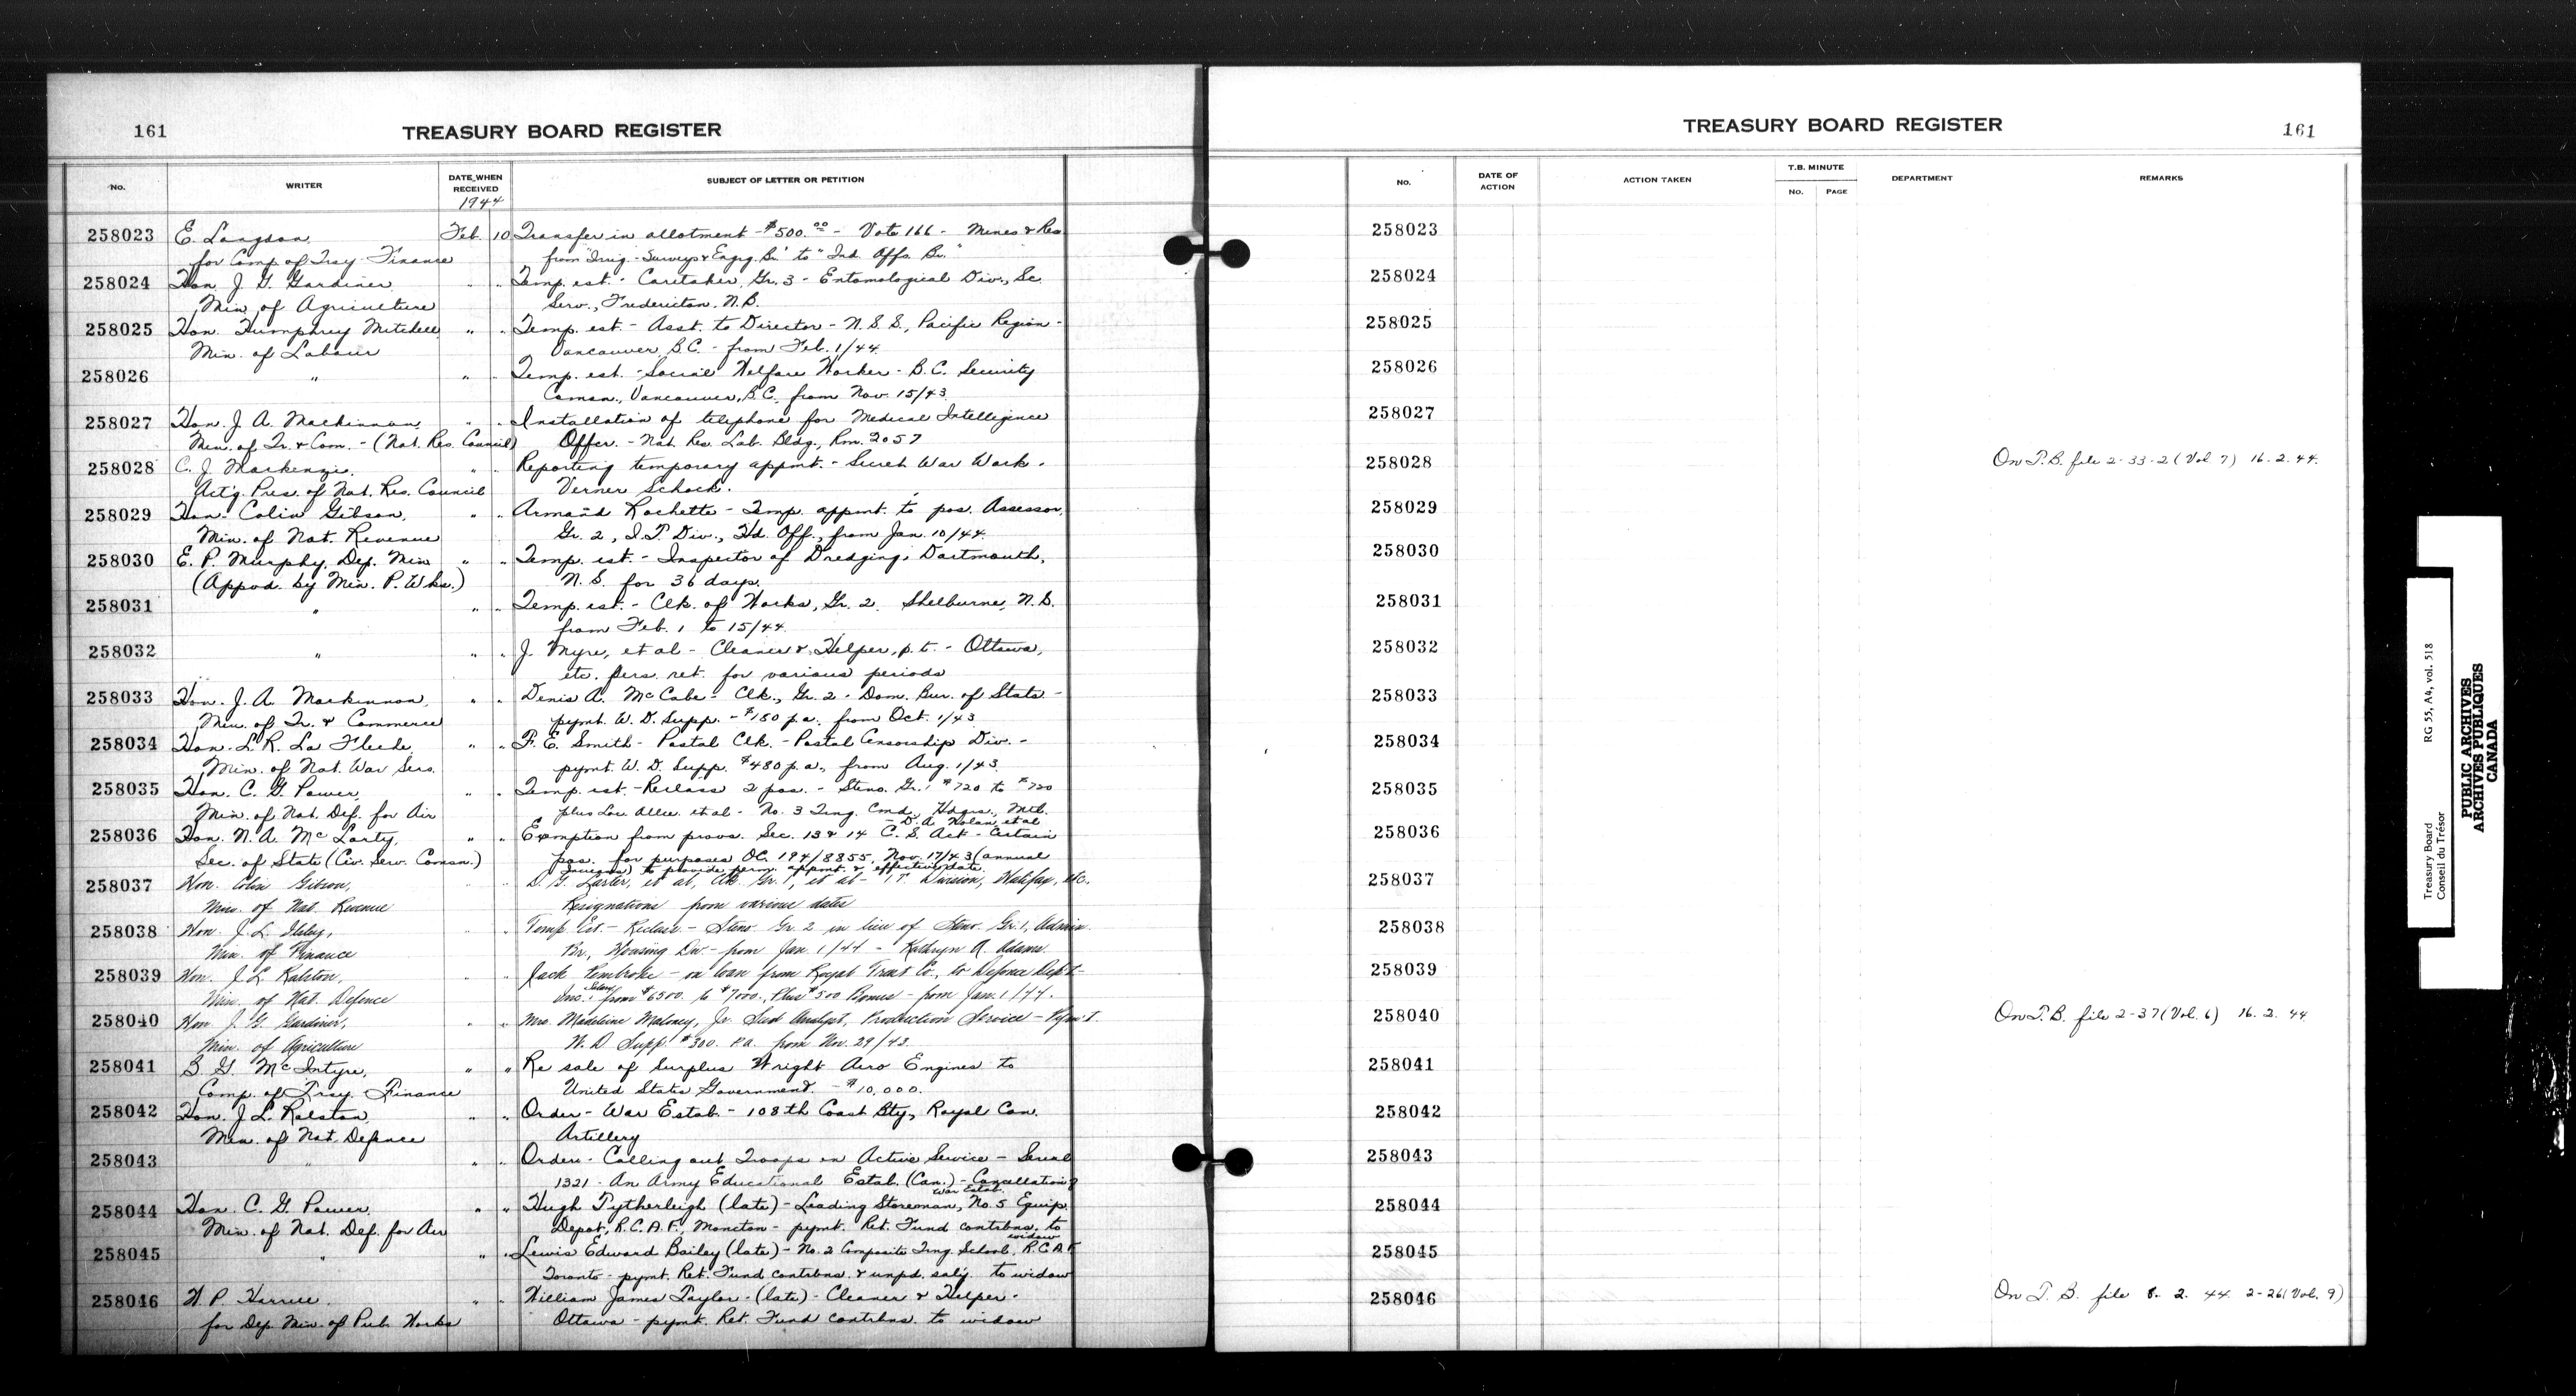 161
TREASURY BOARD REGISTER
No. WRITER DATE WHEN RECEIVED SUBJECT OF LETTER OR PETITION
1944
258023 E. Langdon, Feb. 10 Transfer in allotment - $500.00 - Vote 166 - Mines & Res
for Comp. of Trsy. Finance from "Irrig. - Surveys & Engrg. Br." to "Ind. Affs. Br."
258024 Hon. J. G. Gardiner, " " Temp. est. - Caretaker, Gr. 3 - Entomological Div., Sc.
Min. of Agriculture Serv., Fredericton, N.B.
258025 Hon. Humphrey Mitchell, " " Temp. est. - Asst. to Director - N.S.S., Pacific Region -
Min. of Labour Vancouver, B.C. - from Feb. 1/44.
258026 " " " Temp. est. - Social Welfare Worker - B.C. Security
Comsn., Vancouver, B.C., from Nov. 15/43.
258027 Hon. J. A. Mackinnon, " " Installation of telephone for Medical Intelligence
Min. of Tr. & Com. - (Nat. Res. Council) Offcr. - Nat. Res. Lab. Bldg., Rm. 2057
258028 C. J. Mackenzie, " " Reporting temporary appmt. - Secret War Work -
Act'g. Pres. of Nat. Res. Council Verner Schock.
258029 Hon. Colin Gibson, " " Armand Rochette - Temp. appmt. to pos. Assessor,
Min. of Nat. Revenue Gr. 2, I.T. Div., Hd. Off., from Jan. 10/44.
258030 E. P. Murphy, Dep. Min " " Temp. est. - Inspector of Dredging, Dartmouth,
(Appvd. by Min. P. Wks.) N.S. for 36 days.
258031 " " " Temp. est. - Clk. of Works, Gr. 2. Shelburne, N.S.
from Feb. 1 to 15/44.
258032 " " " J. Myre, et al - Cleaner & Helper, p.t. - Ottawa,
etc. pers. ret. for various periods
258033 Hon. J. A. Mackinnon, " " Denis A. McCabe - Clk., Gr. 2 - Dom. Bur. of Stats -
Min. of Tr. & Commerce pymt. W. D. Supp. - $180 p.a. from Oct. 1/43
258034 Hon. L. R. La Fleche, " " F. E. Smith - Postal Clk. - Postal Censorship Div. -
Min. of Nat. War Servs. pymt. W. D. Supp. $480 p.a., from Aug. 1/43.
258035 Hon. C. G. Power, " " Temp. est. - Reclass 2 pos. - Steno. Gr. 1 $720 to $720
Min. of Nat. Def. for Air plus Liv. Allce. et al - No. 3 Trng. Cmd. Hdqrs., Mtl.
- D. A. Nolan et al
258036 Hon. N. A. McLarty, " " Exemption from provs. Sec. 13 & 14 C. S. Act - Certain
Sec. of State (Civ. Serv. Comsn.) pos. for purposes OC. 194/8855, Nov. 17/43 (annual
increases) to provide perm. appmt. & effective date.
258037 Hon. Colin Gibson, " " D. G. Larter, et al, Clk. Gr. 1, et al - I.T. Division, Halifax, etc.
Min. of Nat. Revenue Resignations from various dates
258038 Hon. J. L. Ilsley, " " Temp Est. - Reclass - Steno Gr. 2 in lieu of Steno. Gr. 1, Admin.
Min. of Finance Br., Housing Div - from Jan. 1/44 - Kathryn A. Adams.
258039 Hon. J. L. Ralston, " " Jack Pembroke - on loan from Royal Trust Co., to Defence Dep't -
Min. of Nat. Defence Inc. Salary from $6500. to $7000., Plus $500 Bonus - from Jan. 1/44.
258040 Hon. J. G. Gardiner, " " Mrs. Madeline Maloney, Jr. Seed Analyst, Production Service - Pym't.
Min. of Agriculture W. D Supp. $300. P.a. from Nov. 29/43.
258041 B. G. McIntyre, " " Re sale of Surplus Wright Aero Engines to
Comp. of Trsy. Finance United States Government. - $10,000.
258042 Hon. J. L. Ralston, " " Order - War Estab. - 108th Coast Bty, Royal Can.
Min. of Nat. Defence Artillery
258043 " " " Order - Calling out Troops on Active Service - Serial
1321 - An Army Educational Estab. (Can.) - Cancellation of
War Estab.
258044 Hon. C. G. Power, " " Hugh Pytherleigh (late) - Leading Storeman, No. 5 Equip.
Min. of Nat. Def. for Air Depot, R.C.A.F., Moncton - pymt. Ret. Fund contrbns. to
widow
258045 " " " Lewis Edward Bailey (late) - No. 2 Composite Trng. School, R.C.A.F.
Toronto - pymt. Ret. Fund contrbns. & unpd. sal'y. to widow
258046 W. P. Harrell, " " William James Taylor - (late) - Cleaner & Helper -
for Dep. Min. of Pub. Works Ottawa - pymt. Ret. Fund contrbns. to widow
TREASURY BOARD REGISTER
161
No. DATE OF ACTION ACTION TAKEN T.B. MINUTE No. PAGE DEPARTMENT REMARKS
258023
258024
258025
258026
258027
258028 On T.B. file 2-33-2 (Vol 7) 16.2.44.
258029
258030
258031
258032
258033
258034
258035
258036
258037
258038
258039
258040 On T.B. file 2-37 (Vol. 6) 16.2.44
258041
258042
258043
258044
258045
258046 On T. B. file 8. 2. 44. 2-26 (Vol. 9)
Treasury Board RG 55, A4, vol. 518
Conseil du Trésor
PUBLIC ARCHIVES
ARCHIVES PUBLIQUES
CANADA